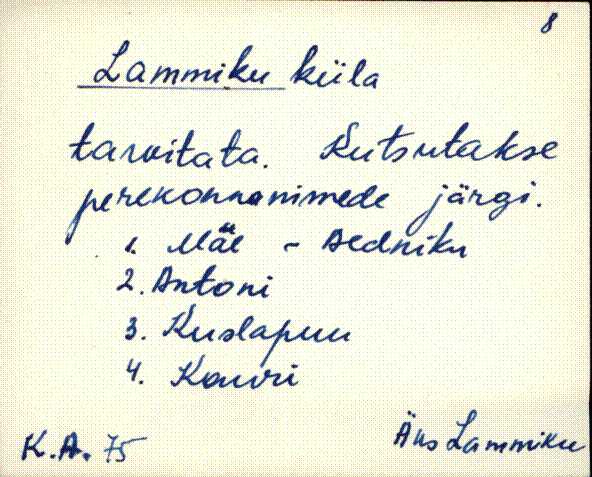 8
Lammiku küla
tarvitata. Kutsutakse
perekonnanimede järgi.
1. Mäe - Aedniku
2. Antoni
3. Kuslapuu
4. Kouri
K.A. 75
Äks Lammiku